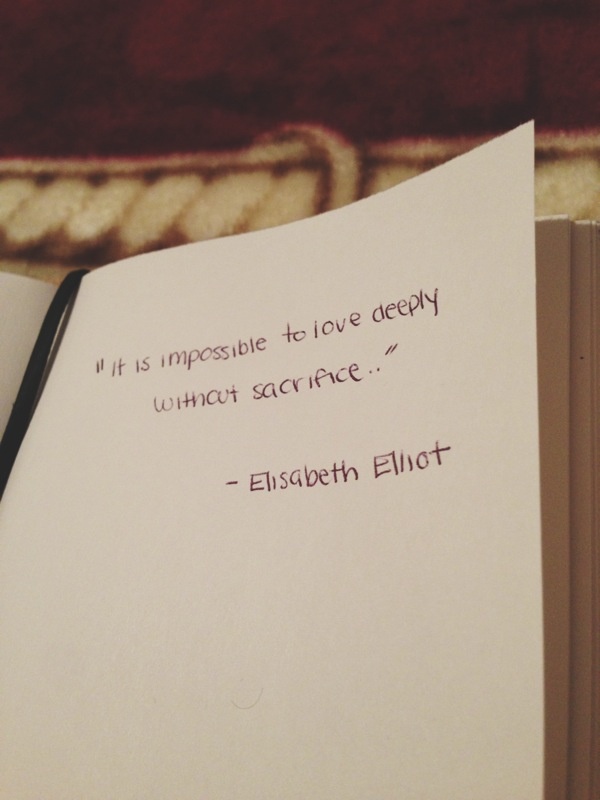 "it is impossible to love deeply
without sacrifice.."
- Elisabeth Elliot